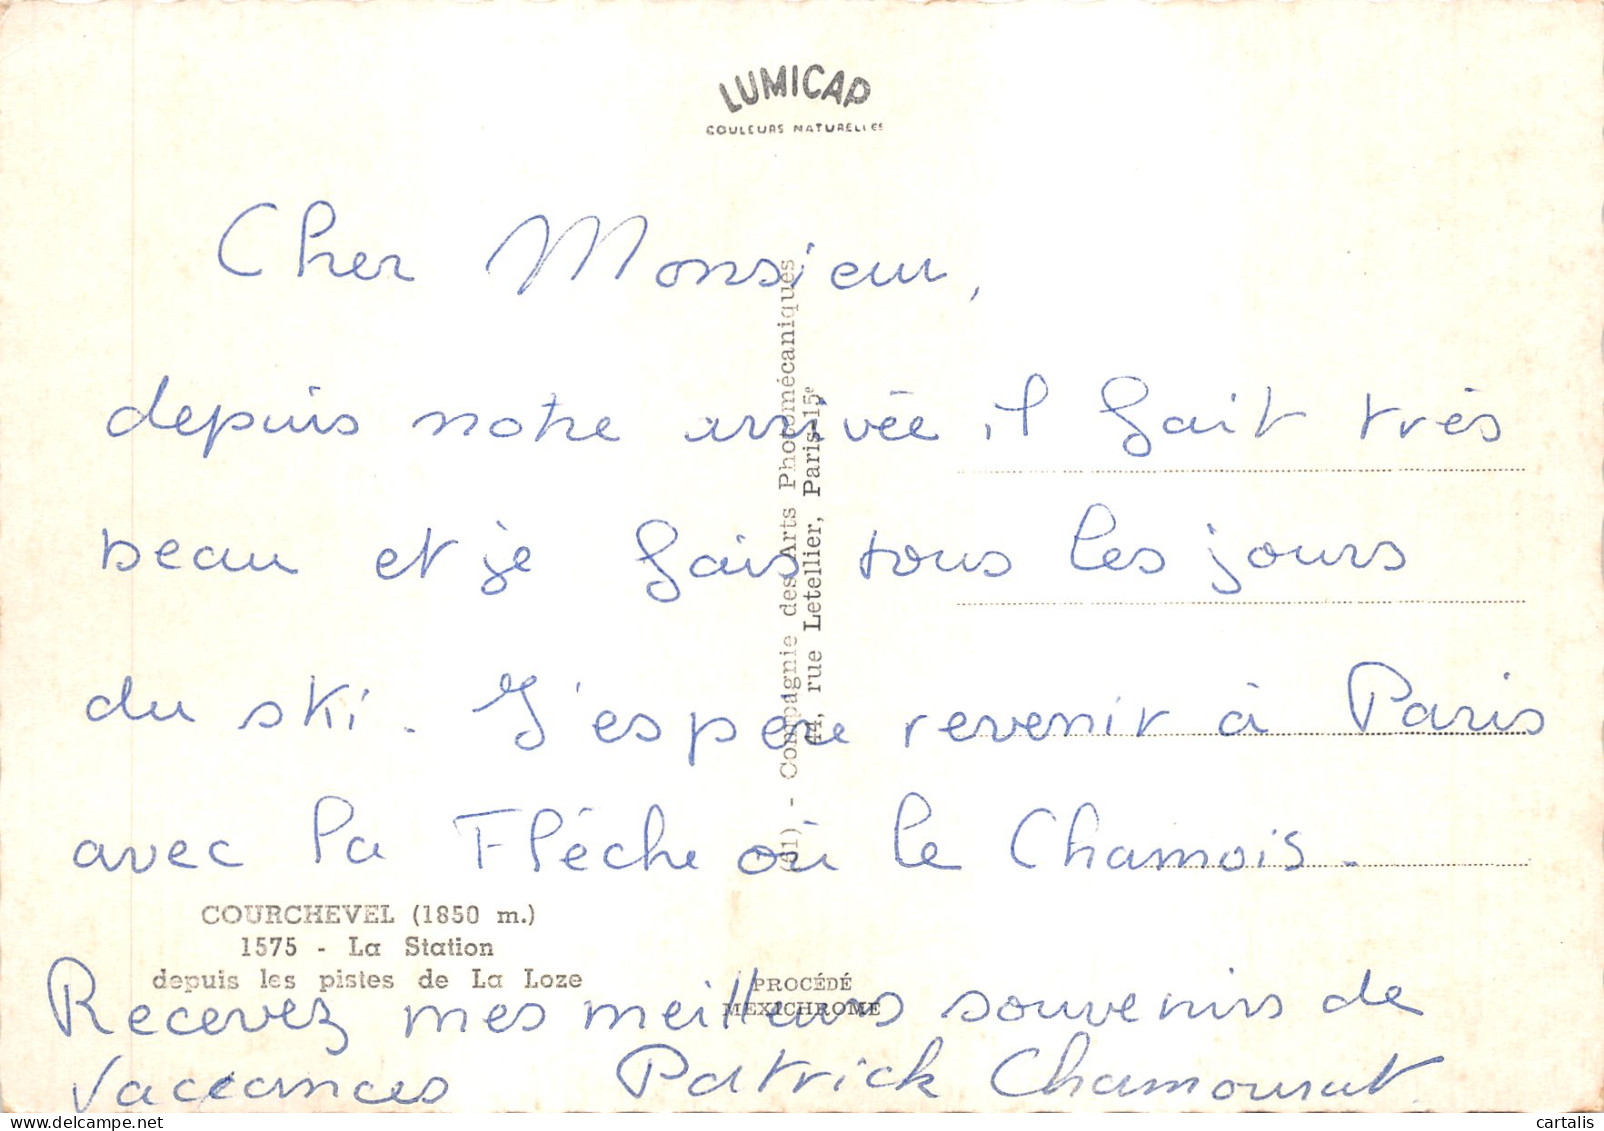 LUMICAP
COULEURS NATURELLES
Cher Monsieur,
depuis notre arrivée il fait très
beau et je fais tous les jours
du ski. J'espère revenir à Paris
avec la Flèche ou le Chamois.
COURCHEVEL (1850 m.)
1575 - La Station
depuis les pistes de La Loze
Recevez mes meilleurs souvenirs de
vacances Patrick
(61) - Compagnie des Arts Photomécaniques
44, rue Letellier, Paris-15e
PROCÉDÉ
MEXICHROME
cartalis